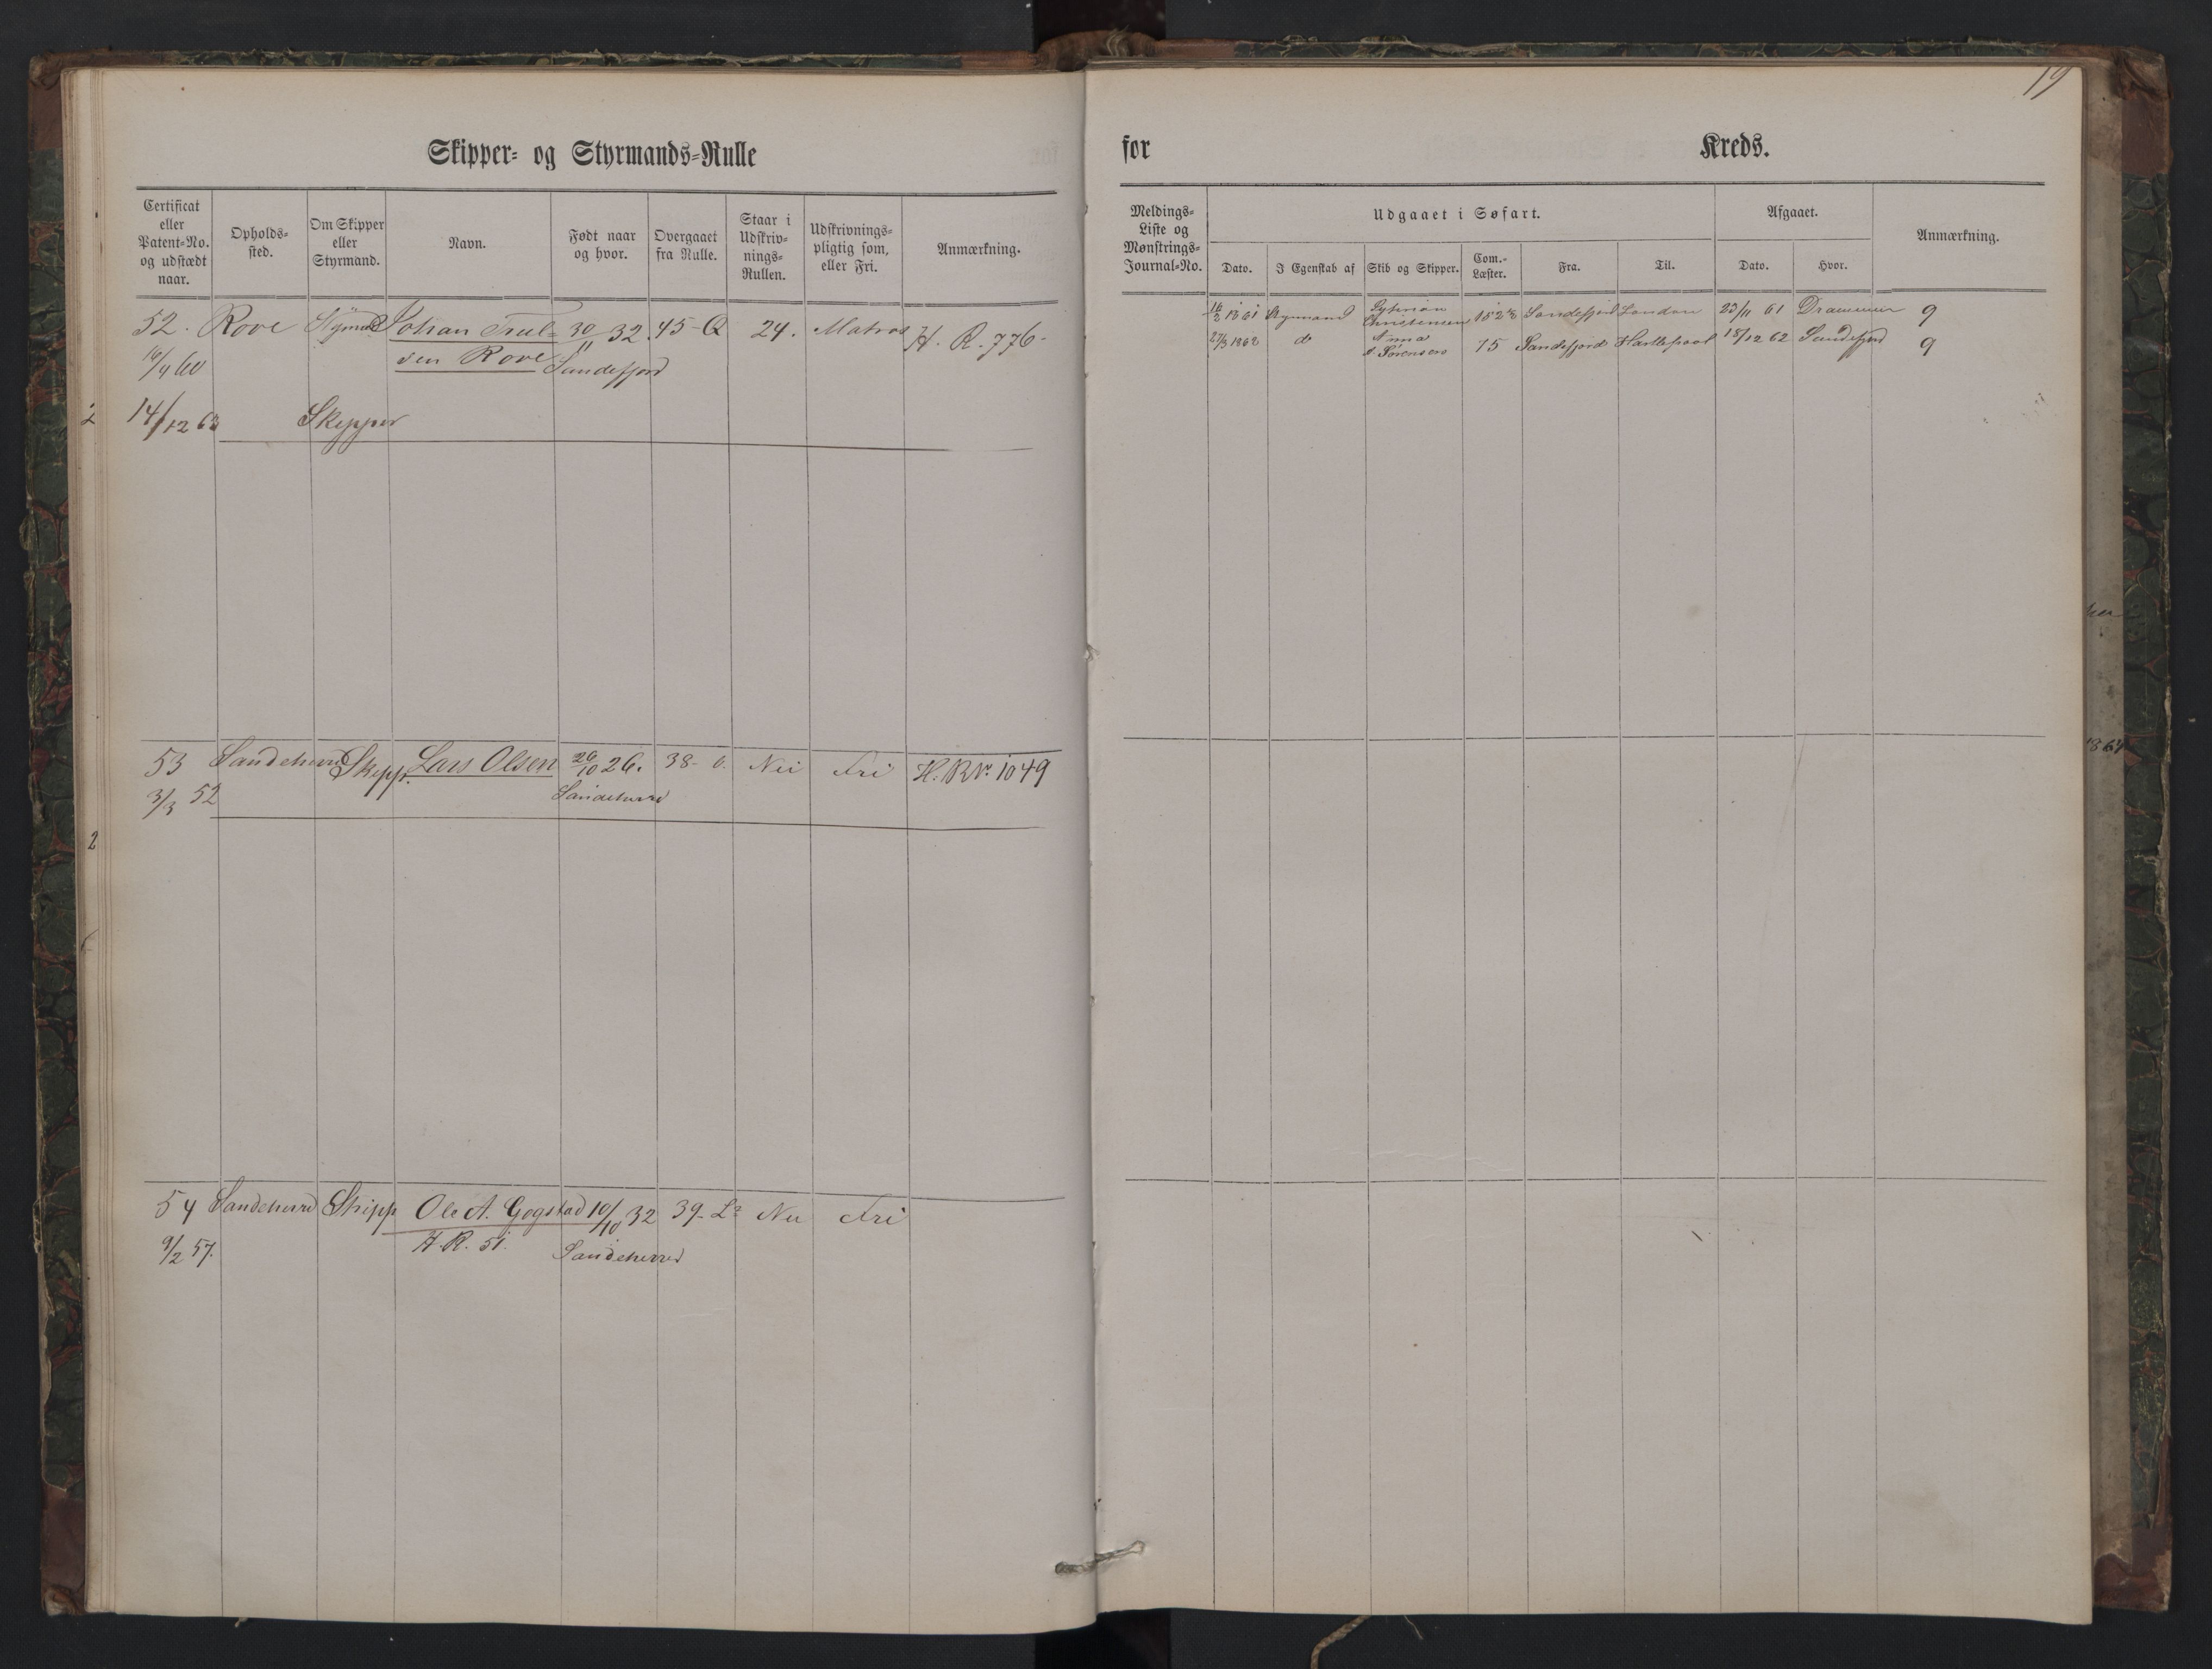 19
Skipper- og Styrmands-Rulle
for Kreds.
Certificat eller Patent-No. og udstædt naar.
Opholds-sted.
Om Skipper eller Styrmand.
Navn.
Født naar og hvor.
Overgaaet fra Rulle.
Staar i Udskriv-nings-Rullen.
Udskrivnings-pligtig som, eller Fri.
Anmærkning.
Meldings-Liste og Mønstrings-Journal-No.
Udgaaet i Søfart.
Dato.
I Egenskab af
Skib og Skipper.
Com.-Læster.
Fra.
Til.
Afgaaet.
Dato.
Hvor.
Anmærkning.
52. Rove Stymd Johan Trul- 30 32. 45-Q 24. Matros H. R. 776-
16/4 60 sen Rove 11 Sandefjord
14/12 63 Skipper
1861 Stymand Christensen Sandefjord London 23/11 61 Drammen 9
27/3 1862 do Anna Sørensen 75 Sandefjord Hartlepool 18/12 62 Sandefjord 9
53 Sandeherred Skipp. Lars Olsen 26/10 26. 38- Nei Fri H. R No. 1049
3/3 52 Sandeherred
54 Sandeherred Skipp Ole A. Gogstad 10/10 32 39- Nei Fri
9/2 57. H. R. 51. Sandeherred